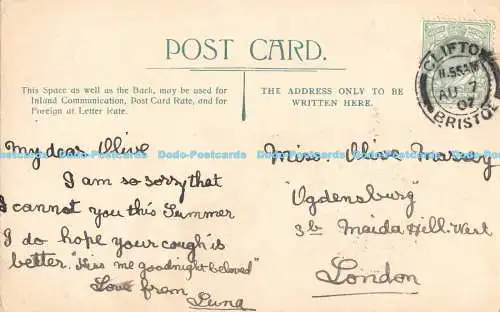 POST CARD.
This Space as well as the Back, may be used for
Inland Communication, Post Card Rate, and for
Foreign at Letter Rate.
THE ADDRESS ONLY TO BE
WRITTEN HERE.
CLIFTON
11.55AM
AU 7
07
BRISTOL
My dear Olive
I am so sorry that
I cannot you this Summer
I do hope your cough is
better. "Kiss me goodnight beloved"
Love from
Luna
Miss. Olive
"Ogdensburg"
3b Maida Hill. West
London
Dodo-Postcards Dodo-Postcards Dodo-Postcards Dodo-Postcards